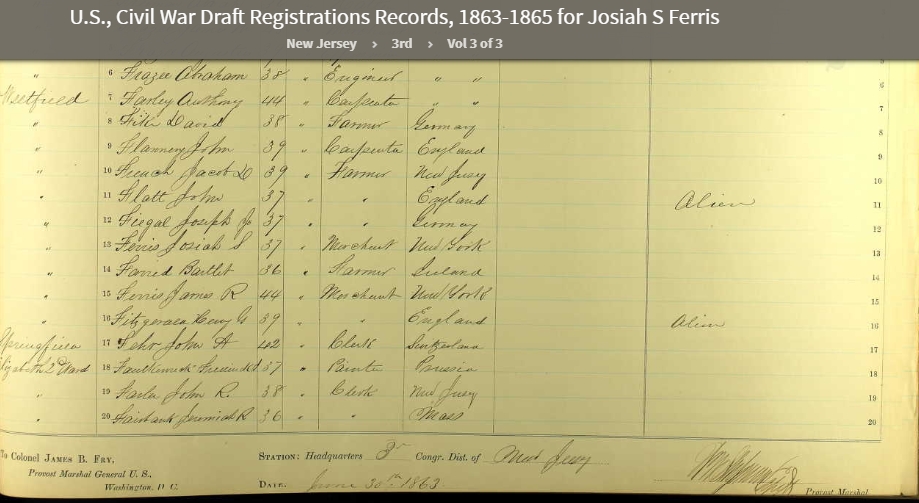 U.S., Civil War Draft Registrations Records, 1863-1865 for Josiah S Ferris
New Jersey › 3rd › Vol 3 of 3
" 6 Frazee Abraham 38 " Engineer " " 6
Westfield 7 Farley Anthony 44 " Carpenter " " 7
" 8 David 38 " Farmer Germany 8
" 9 Flannery John 39 " Carpenter England 9
" 10 French Jacob D 39 " Farmer New Jersey 10
" 11 Flatt John 37 " " England Alien 11
" 12 Fiegal Joseph 37 " " Germany 12
" 13 Ferris Josiah S 37 " Merchant New York 13
" 14 Farred Bartlet 36 " Farmer Ireland 14
" 15 Ferris James R 44 " Merchant New York 15
" 16 Fitzgerald Henry G 39 " " England Alien 16
Springfield 17 Fehr John A 42 " Clerk Switzerland 17
Elizabeth 2d Ward 18 37 " Painter Prussia 18
" 19 John R. 38 " Clerk New Jersey 19
" 20 Fairbank Jeremiah R 36 " " Mass 20
To Colonel James B. Fry,
Provost Marshal General U. S.,
Washington, D. C.
Station: Headquarters 3d Congr. Dist. of New Jersey
Date, June 30th 1863
Provost Marshal